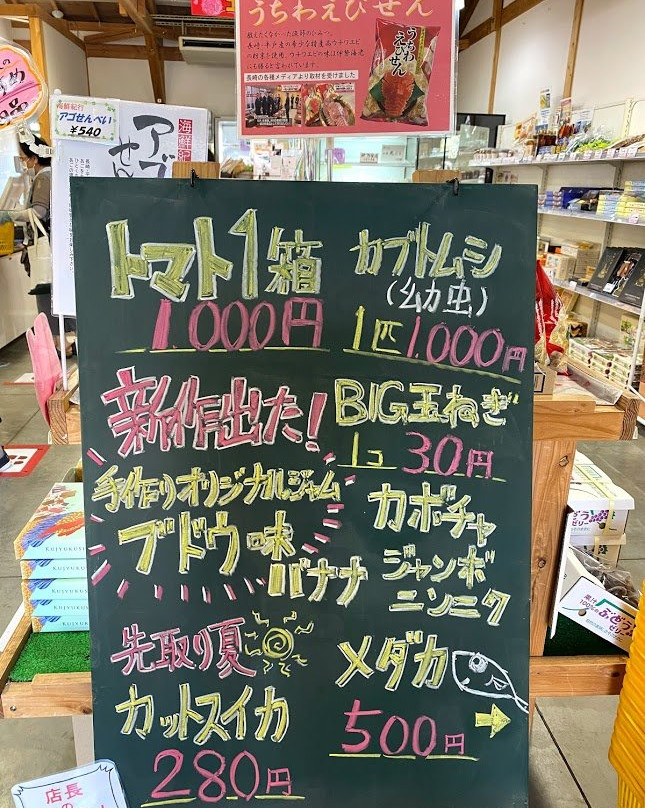 うちわえびせん
長崎の各種メディアより取材を受けました
うちわえびせん
海鮮紀行
アゴせんべい
¥540
海鮮紀
アゴ
せん
トマト1箱
1.000円
カブトムシ
(幼虫)
1匹1,000円
新作出た!
手作りオリジナルジャム
ブドウ味
バナナ
BIG玉ねぎ
1コ 30円
カボチャ
ジャンボ
ニンニク
先取り夏
カットスイカ
280円
メダカ
500円
KUJYUKUS
KUJYUKUS
KUJYUKUS
果汁
100%
ぶどう
ゼリー
店長
の